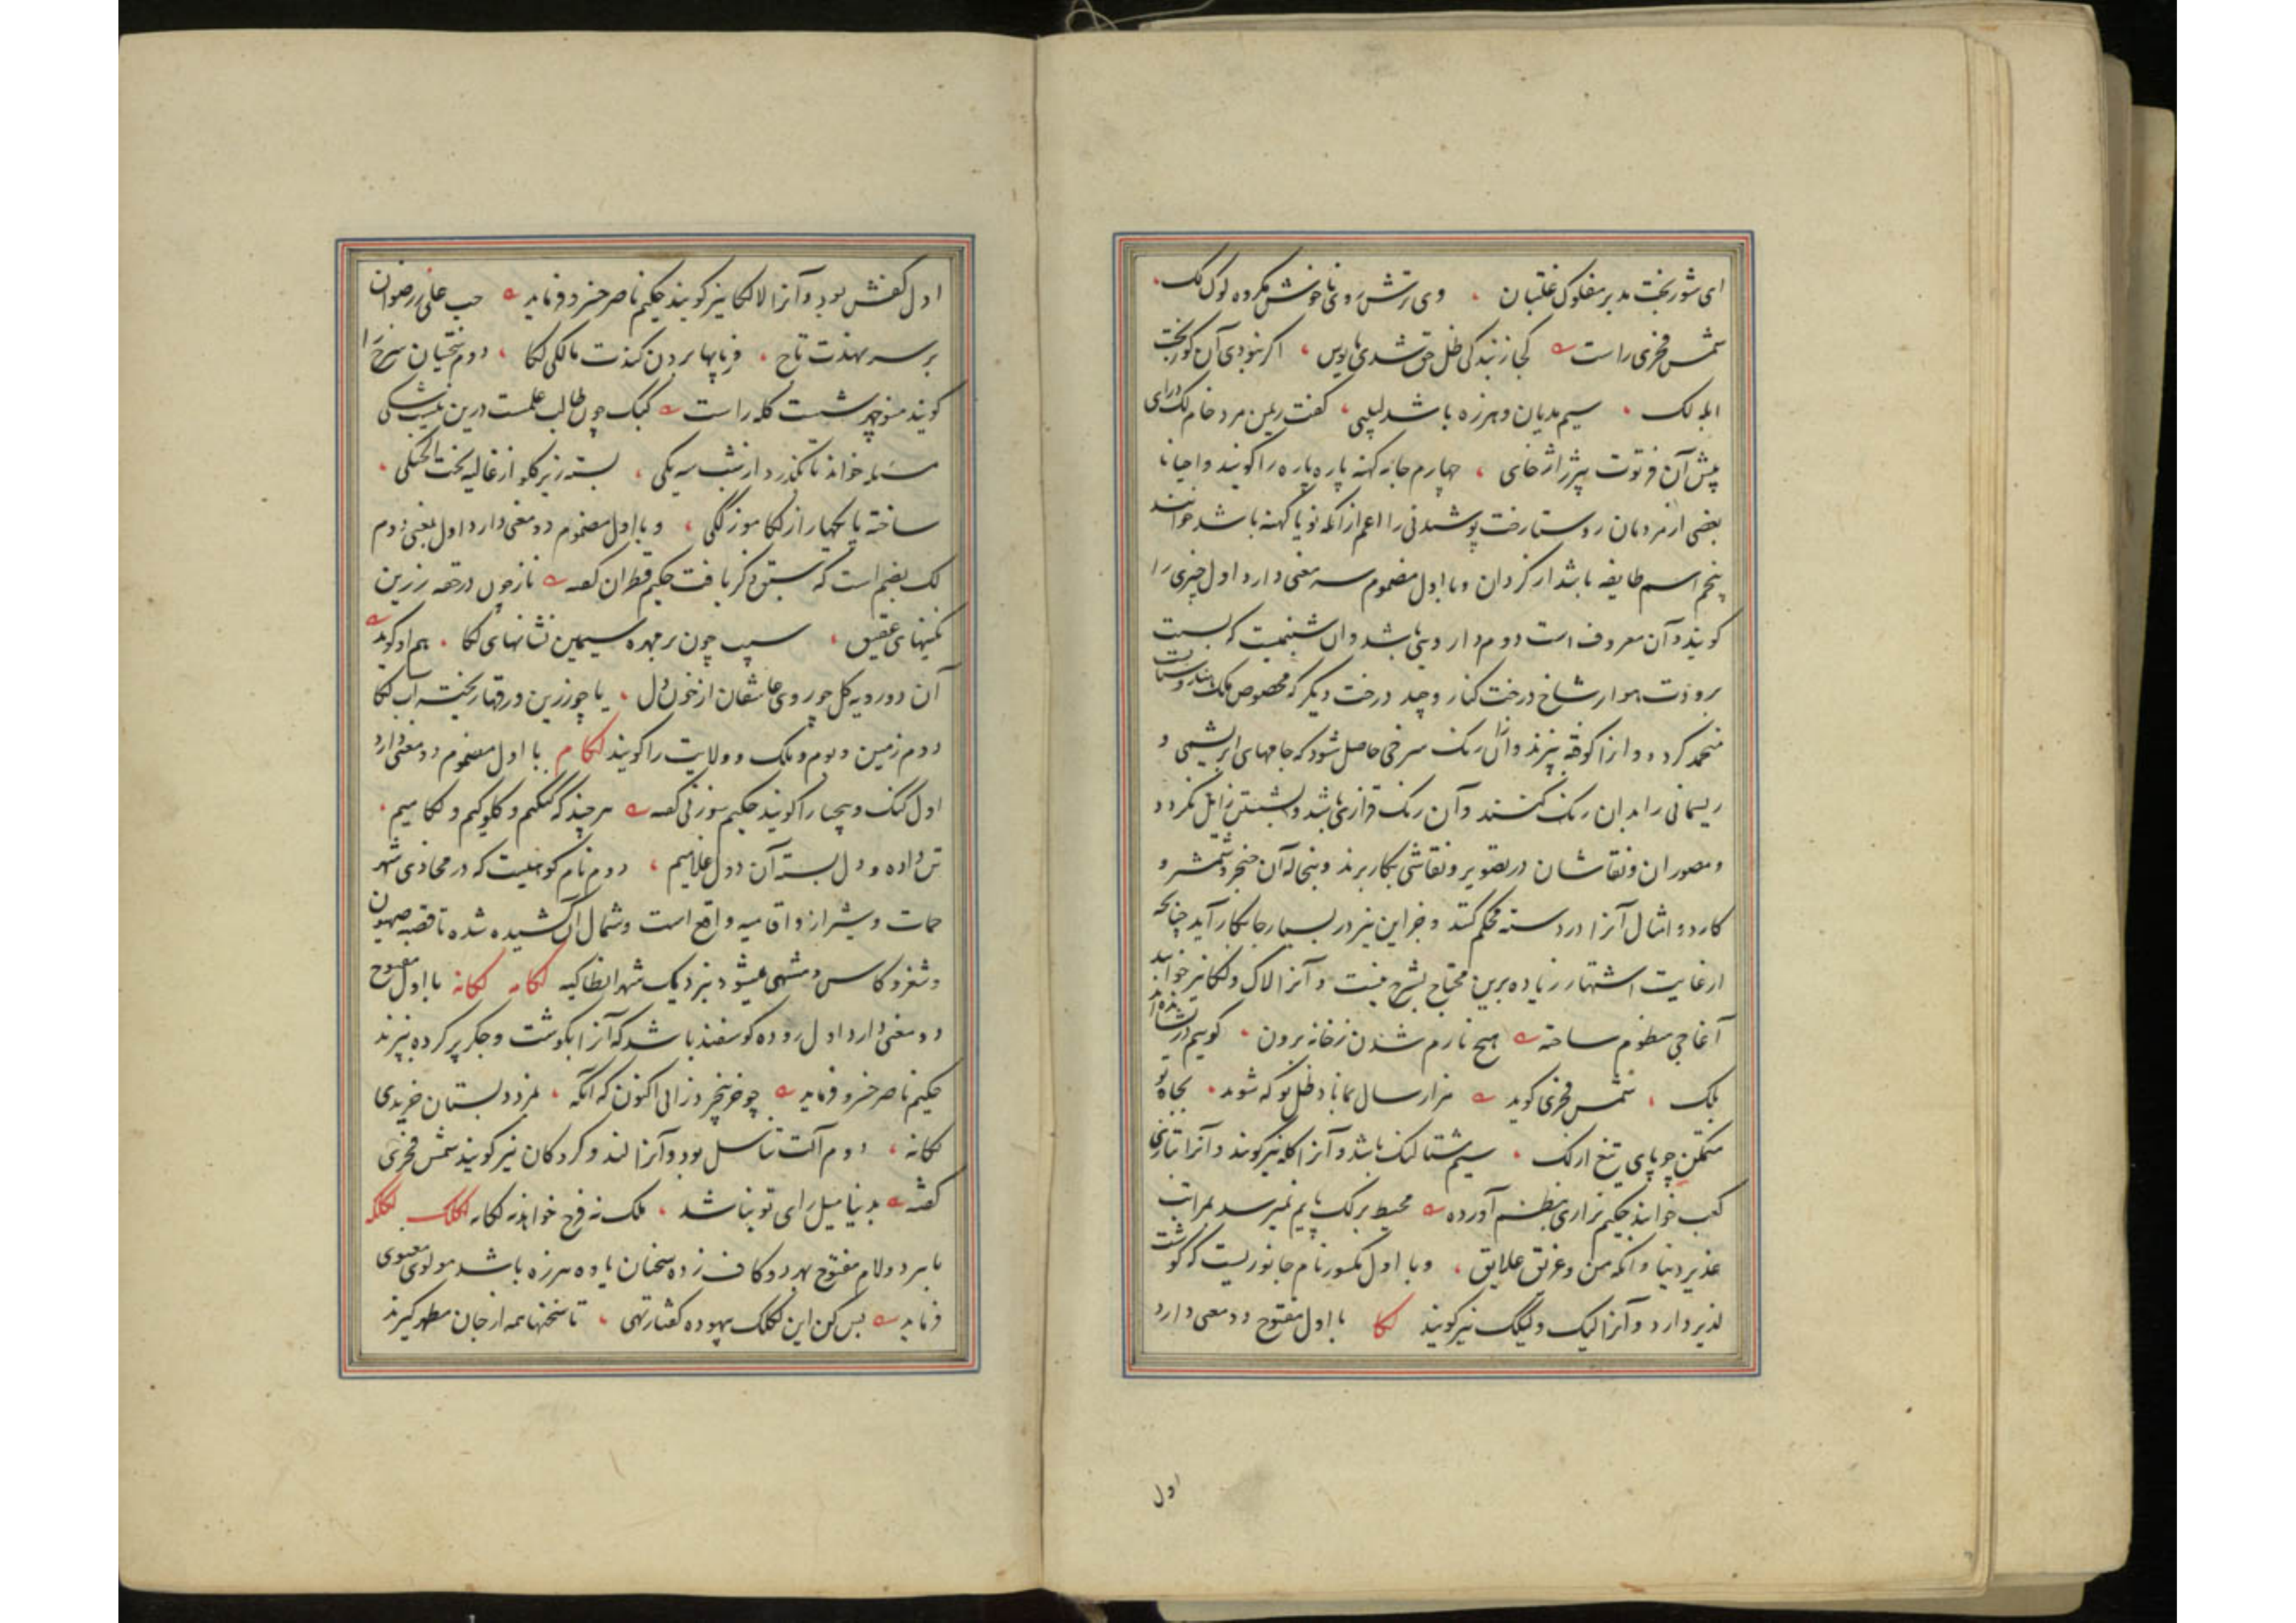 ای شوربخت مدبر مفلوک غلتبان وی ترش روی ناخوش مکروه لوک لک
شمس فخری راست کجا زنبد کی ظل حق شدی مایوس اگر نبودی آن کوربخت
ابله لک سیم هدیان و هرزه باشد لبیبی گفت ریمن مرد خام لک درای
پیش آن فرتوت پیژ ژاژ خای چهارم جامه کهنه پاره پاره را گویند و احیانا
بعضی از مردمان روستا رخت پوشیدنی را اعم از آنکه نو یا کهنه باشد خوانند
پنجم اسم طایفه باشد از کردان و با اول مضموم سه معنی دارد اول چیزی را
گویند و آن معروف است دوم دارویی باشد و آن شبنمیست که بسبب
برودت هوا بر شاخ درخت کنار و چند درخت دیگر که مخصوص ملک
منجمد گردد و آنرا کوفته بپزند و از آن رنگ سرخی حاصل شود که جامهای ابریشمی و
ریسمانی را بدان رنگ کنند و آن رنگ قراری باشد و بشستن زایل نگردد
و مصوران و نقاشان در تصویر و نقاشی بکار برند و بنجاله آن خنجر و شمشیر و
کارد و امثال آنرا در دسته محکم کنند و جز این نیز در بسیار جا بکار آید چنانچه
از غایت اشتهار زیاده برین محتاج بشرح نیست و آنرا لاک و لکا نیز خوانند
آغاجی منظوم ساخته هیچ نارم شدن زخانه برون گویم
بلک شمس فخری گوید هزار سال بمانا و ظل تو که شود بجاه تو
متمکن چو پای تیغ از لک سیم شتالنگ باشد و آنرا کله نیز گویند و آنرا بتازی
کعب خوانند حکیم نزاری بنظم آورده محیط برلک پایم نمیرسد بمراتب
غدیر دنیا وانکه من و غریق علایق و با اول مکسور نام جانوریست که گوشت
لذیذ دارد و آنرا لیک و لیلک نیز گویند لکا با اول مفتوح دو معنی دارد
اول
اول کفش بود و آنرا لالکا نیز گویند حکیم ناصر خسرو فرماید حب علی ز رضوان
بر سر نهدت تاج فرپایها بردن کندت مالکی لکا دوم تیخیان سرخ را
گویند منوچهر شست کله راست کبک چون طالب علمست درین نیست شکی
مسئله خواند تا بگذرد از شب سه یکی بسته زیر گلو از غالیه تحت الحنکی
ساخته پایکها را ز لکا موزگکی و با اول مضموم دو معنی دارد اول بمعنی دوم
لک بضم است که سبق ذکر یافت حکیم قطران گفته نار چون در حقه زرین
نگینهای عقیق سیب چون بر مهره سیمین نشانهای لکا هم او گوید
آن دو رویه گل چو روی عاشقان از خون دل یا چو زرین ورقها ریخته آب لکا
دوم زمین و بوم و ملک و ولایت را گویند لکام با اول مضموم دو معنی دارد
اول لنگ و پیچا را گویند حکیم سوزنی گفته هر چند که گنگیم و کلوکیم و لکامیم
تن داده و دل بسته آن دول غلامیم دوم نام کوهیست که در محاذی شهر
حمات و شیراز و افامیه واقع است و شمال آن کشیده شده تا قصبه صهیون
و شغر و کاس و منتهی میشود بنزدیک شهر انطاکیه لکامه لکانه با اول مفتوح
دو معنی دارد اول روده گوسفند باشد که آنرا بگوشت و جگر پر کرده بپزند
حکیم ناصر خسرو فرماید چو خر بنخرد زانی اکنون که آنگه بمزد دبستان خریدی
لکانه دوم آلت تناسل بود و آنرا لند و گردکان نیز گویند شمس فخری
گفته بدینا میل رای تو بناشد ملک نه فرج خواند نه لکانه لکلک لکلکه
با هر دو لام مفتوح بهر دو کاف زده سخنان یاوه هرزه باشد مولوی معنوی
فرماید بس کن این لکلک بیهوده گفتار تهی تا سخنها همه از جان مطهر گیرند